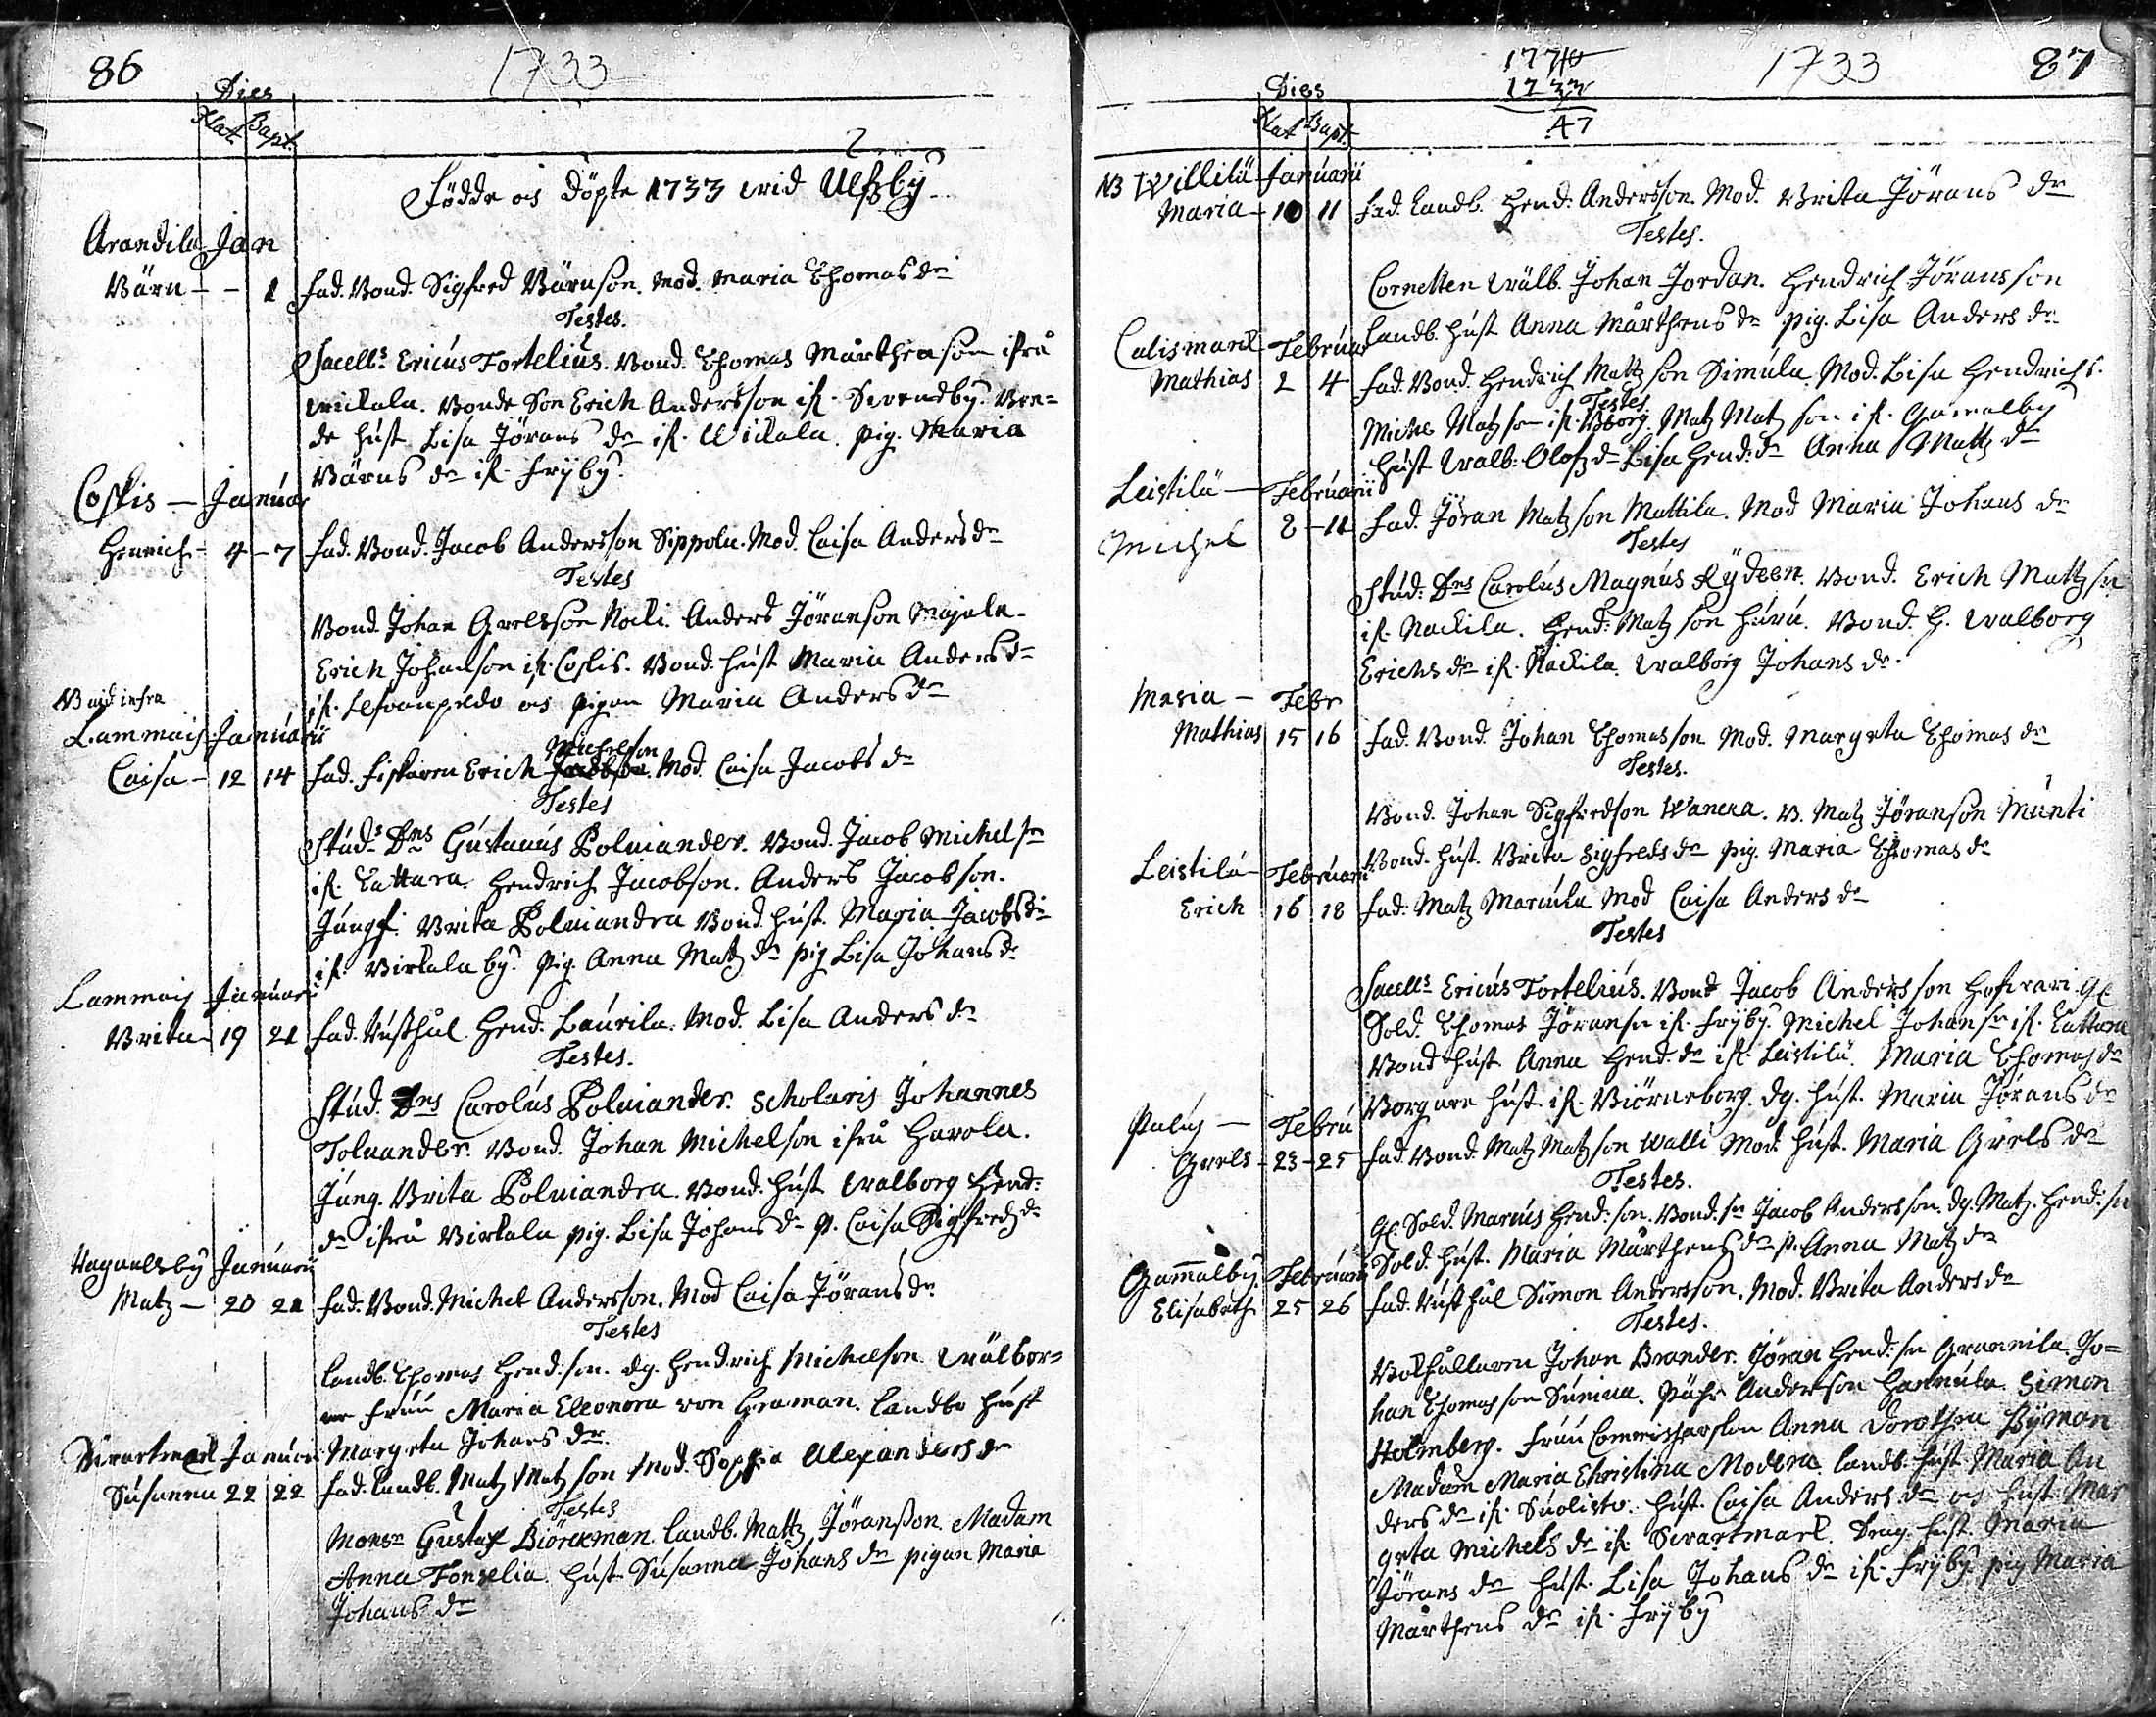 86
1733
Dies
Nat. Bapt.
Födde os döpte 1733 wid Ulfsby
Arandila Jan
Bärn - - 1 fad. Bond. Sigfred Bärnson. Mod. Maria Thomas dr
Testes.
Sacells Ericus Fortelius. Bond. Thomas Mårthenson ifrå
Wickala. Bonde Son Erich Andersson if. Swendby. Bon=
de hust Lisa Jörans dr if. Wickala. pig. Maria
Bärns dr if. Fryby.
Coskis — Januar
Henrich - 4 - 7 fad. Bond. Jacob Andersson Sippola. Mod. Caisa Anders dr
Testes
Bond. Johan Grelsson Noki. Anders Jöranson Majala
Erich Johanson if. Coskis. Bond. hust Maria Anders dr
if. os pigan Maria Anders dr
NB vid infra
Lammais Januarii
Caisa - 12 14 fad. fiskaren Erich Michelson Mod. Caisa Jacobs dr
Testes
Stud: Dns Gustavus Polviander. Bond. Jacob Michel sn
if. Lattara. Hendrich Jacobson. Anders Jacobson.
Jungf. Brita Polviandra Bond. hust. Maria Jacobs dr
if. Birkala by. pig. Anna Matz dr pig Lisa Johans dr
Lammais Januari
Brita - 19 21 fad. Rusthål. Hend. Laurila. Mod. Lisa Anders dr
Testes.
Stud. Dns Carolus Polviander. Scholaris Johannes
Tolvander. Bond. Johan Michelson ifrå Harola.
Jung. Brita Polviandra. Bond. hust Walborg Hend:
dr ifrå Birkala pig. Lisa Johans dr p. Caisa Sigfreds dr
Ragnelsby Januarii
Matz — 20 21 fad. Bond. Michel Andersson. Mod Caisa Jörans dr
Testes
landb. Thomas Hend:son. dg. Hendrich Michelson Wälbor=
ne fruu Maria Eleonora von Heaman. landbo hust
Margeta Johans dr.
Swartmark Januari
Susanna 22 22 fad. landb. Matz Matz son Mod. Sophia Alexanders dr
Testes
Monsr Gustaf Biörckman. landb. Mattz Jöransson. Madam
Anna Fonselia. hust Susanna Johans dr pigan Maria
Johans dr
1770
1733
47
1733
87
Dies
Nat Bapt.
NB Willilä Januarii
Maria - 10 11 fad. landb. Hend: Andersson. Mod. Brita Jörans dr
Testes.
Cornetten Wälb. Johan Jordan. Hendrich Jöransson
landb. hust Anna Mårthens dr pig. Lisa Anders dr
Calismark Februar
Mathias 2 4 fad. Bond. Hendrich Mattz son Simula. Mod. Lisa Hendrichs.
Testes
Michel Matz son if. Matz Matz son if. Gamalby
hust Walb: Olofs dr Lisa Hend: dr Anna Mattz dr
Leistilä — Februarii
Michel 8 - 11 fad. Jöran Matz son Mattila. Mod Maria Johans dr
Testes
Stud: Dns Carolus Magnus Rydeen. Bond. Erich Mattz sn
if. Nackila. Hend: Matz son Huru. Bond. H. Walborg
Erichs dr if. Nackila. Walborg Johans dr.
Masia — Febr
Mathias 15 16 fad. Bond. Johan Thomasson Mod. Margeta Thomas dr
Testes.
Bond. Johan Sigfredson Wanera. B. Matz Jöranson Munti
Bond. hust. Brita Sigfreds dr pig. Maria Thomas dr
Leistilä - Februari
Erich 16 18 fad: Matz Marcula Mod Caisa Anders dr
Testes
Sacells Ericus Fortelius. Bond Jacob Andersson
Sold. Thomas Jöransn if. Fryby. Michel Johansn if. Lattara
Bond hust Anna Hend. dr if. Leistilä. Maria Thomas dr
Borgare hust if. Biörneborg. dg. hust. Maria Jörans dr
Palus — Febru
Grels - 23 - 25 fad. Bond. Matz Matz son Walli Mod. hust. Maria Grels dr
Testes.
Gl. Sold. Marcus Hend: son. Bond. sn Jacob Andersson. dg. Matz. Hend: sn
Sold. hust. Maria Mårthens dr p. Anna Matz dr
Gamalby Februarii
Elisabeth 25 26 fad. Rusthål Simon Andersson. Mod. Brita Anders dr
Testes.
Bokhållaren Johan Brander. Jöran Hend: sn Grannila. Jo=
han Thomasson Sunina. Påhr Anderson Hannula. Simon
Holmberg. Fruu Anna Dorothea Byman
Madam Maria Christina Modéra. landb. hust Maria An
ders dr if. Suolisto. hust. Caisa Anders dr os hust Mar
geta Michels dr if. Swartmark. Dreng. hust. Maria
Jörans dr hust. Lisa Johans dr if. Fryby. pig Maria
Mårthens dr if. Fryby